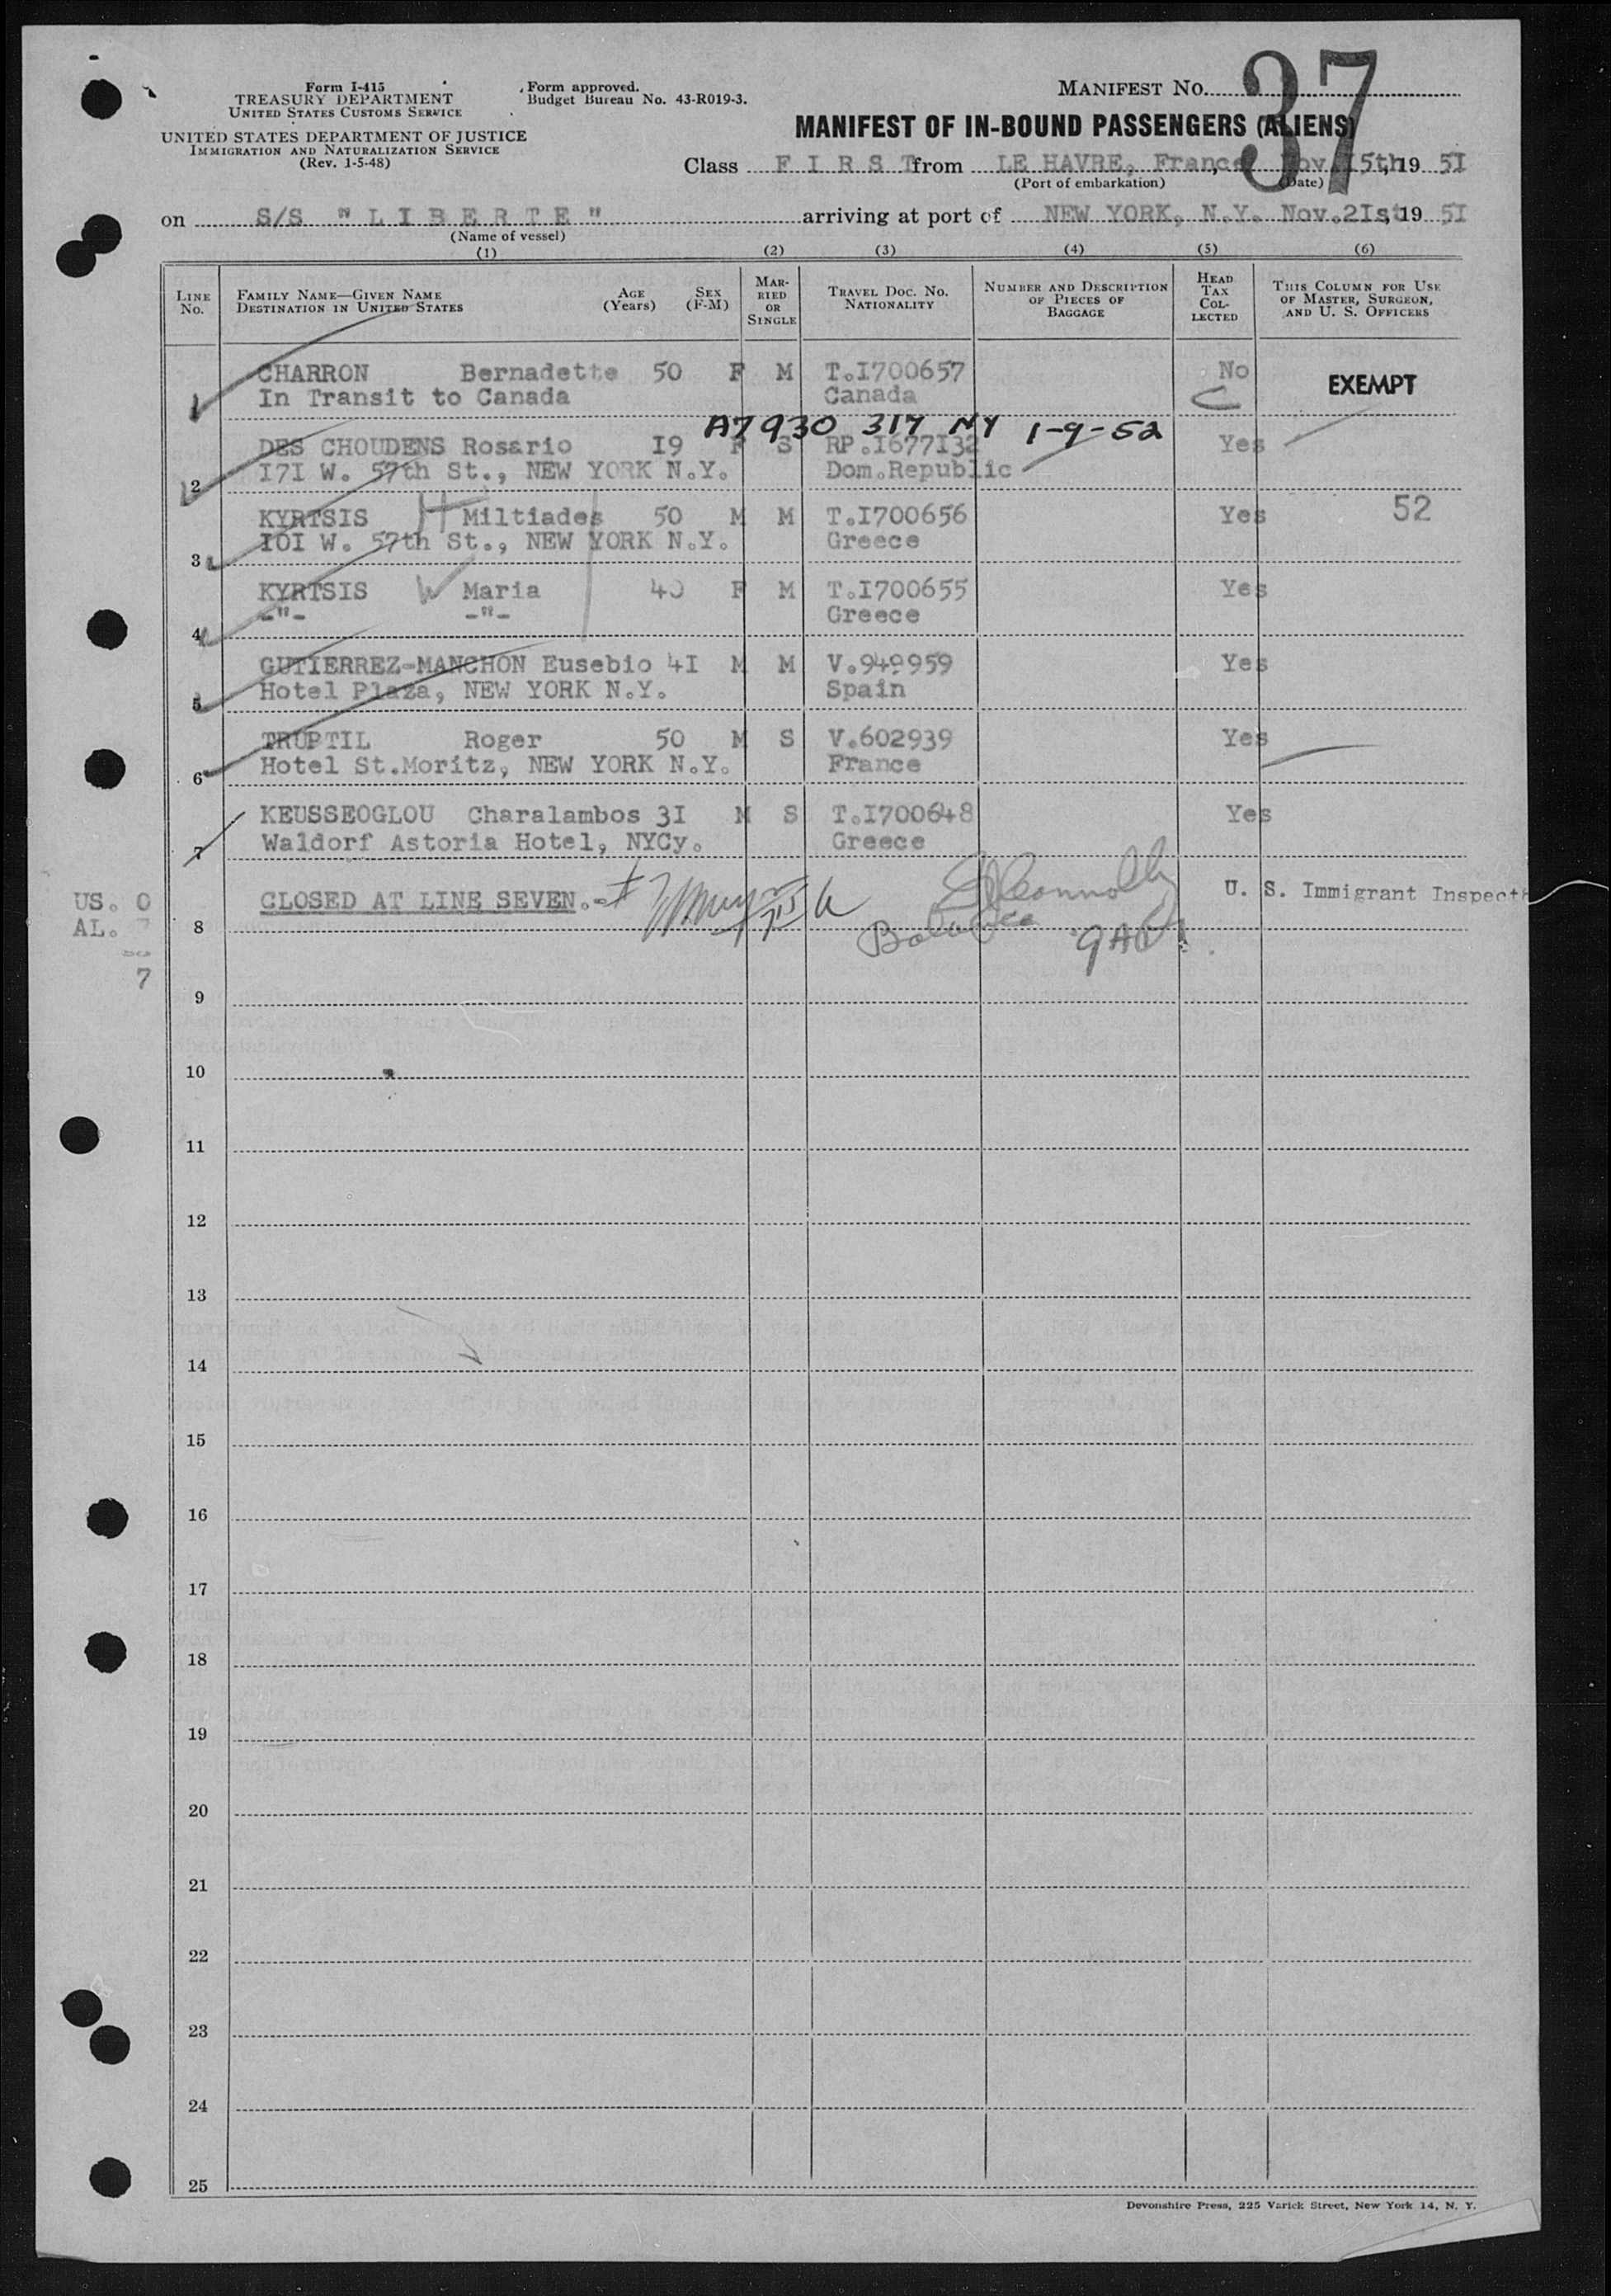 Form I-415
TREASURY DEPARTMENT
UNITED STATES CUSTOMS SERVICE
UNITED STATES DEPARTMENT OF JUSTICE
IMMIGRATION AND NATURALIZATION SERVICE
(Rev. 1-5-48)
Form approved.
Budget Bureau No. 43-R019-3.
MANIFEST NO. 37
MANIFEST OF IN-BOUND PASSENGERS (ALIENS)
Class F I R S T from LE HAVRE, France, Nov. I5th, 19 5I
(Port of embarkation) (Date)
on S/S "L I B E R T E" arriving at port of NEW YORK, N.Y. Nov.2Ist, 19 5I
(Name of vessel)
(1) (2) (3) (4) (5) (6)
LINE No. FAMILY NAME—GIVEN NAME DESTINATION IN UNITED STATES AGE (Years) SEX (F-M) MARRIED OR SINGLE TRAVEL DOC. NO. NATIONALITY NUMBER AND DESCRIPTION OF PIECES OF BAGGAGE HEAD TAX COLLECTED THIS COLUMN FOR USE OF MASTER, SURGEON, AND U. S. OFFICERS
1 CHARRON Bernadette 50 F M T.I700657 No EXEMPT
In Transit to Canada Canada C
A7 930 317 NY 1-9-52
DES CHOUDENS Rosario I9 F S RP.I677I32 Yes
2 I7I W. 57th St., NEW YORK N.Y. Dom.Republic
KYRTSIS H Miltiades 50 M M T.I700656 Yes 52
3 IOI W. 57th St., NEW YORK N.Y. Greece
KYRTSIS W Maria 40 F M T.I700655 Yes
4 -"- -"- Greece
GUTIERREZ-MANCHON Eusebio 4I M M V.949959 Yes
5 Hotel Plaza, NEW YORK N.Y. Spain
TRUPTIL Roger 50 M S V.602939 Yes
6 Hotel St.Moritz, NEW YORK N.Y. France
KEUSSEOGLOU Charalambos 3I M S T.I700648 Yes
7 Waldorf Astoria Hotel, NYCy. Greece
US. 0 CLOSED AT LINE SEVEN.- U. S. Immigrant Inspect
AL. 7 8
7
9
10
11
12
13
14
15
16
17
18
19
20
21
22
23
24
25
Devonshire Press, 225 Varick Street, New York 14, N. Y.